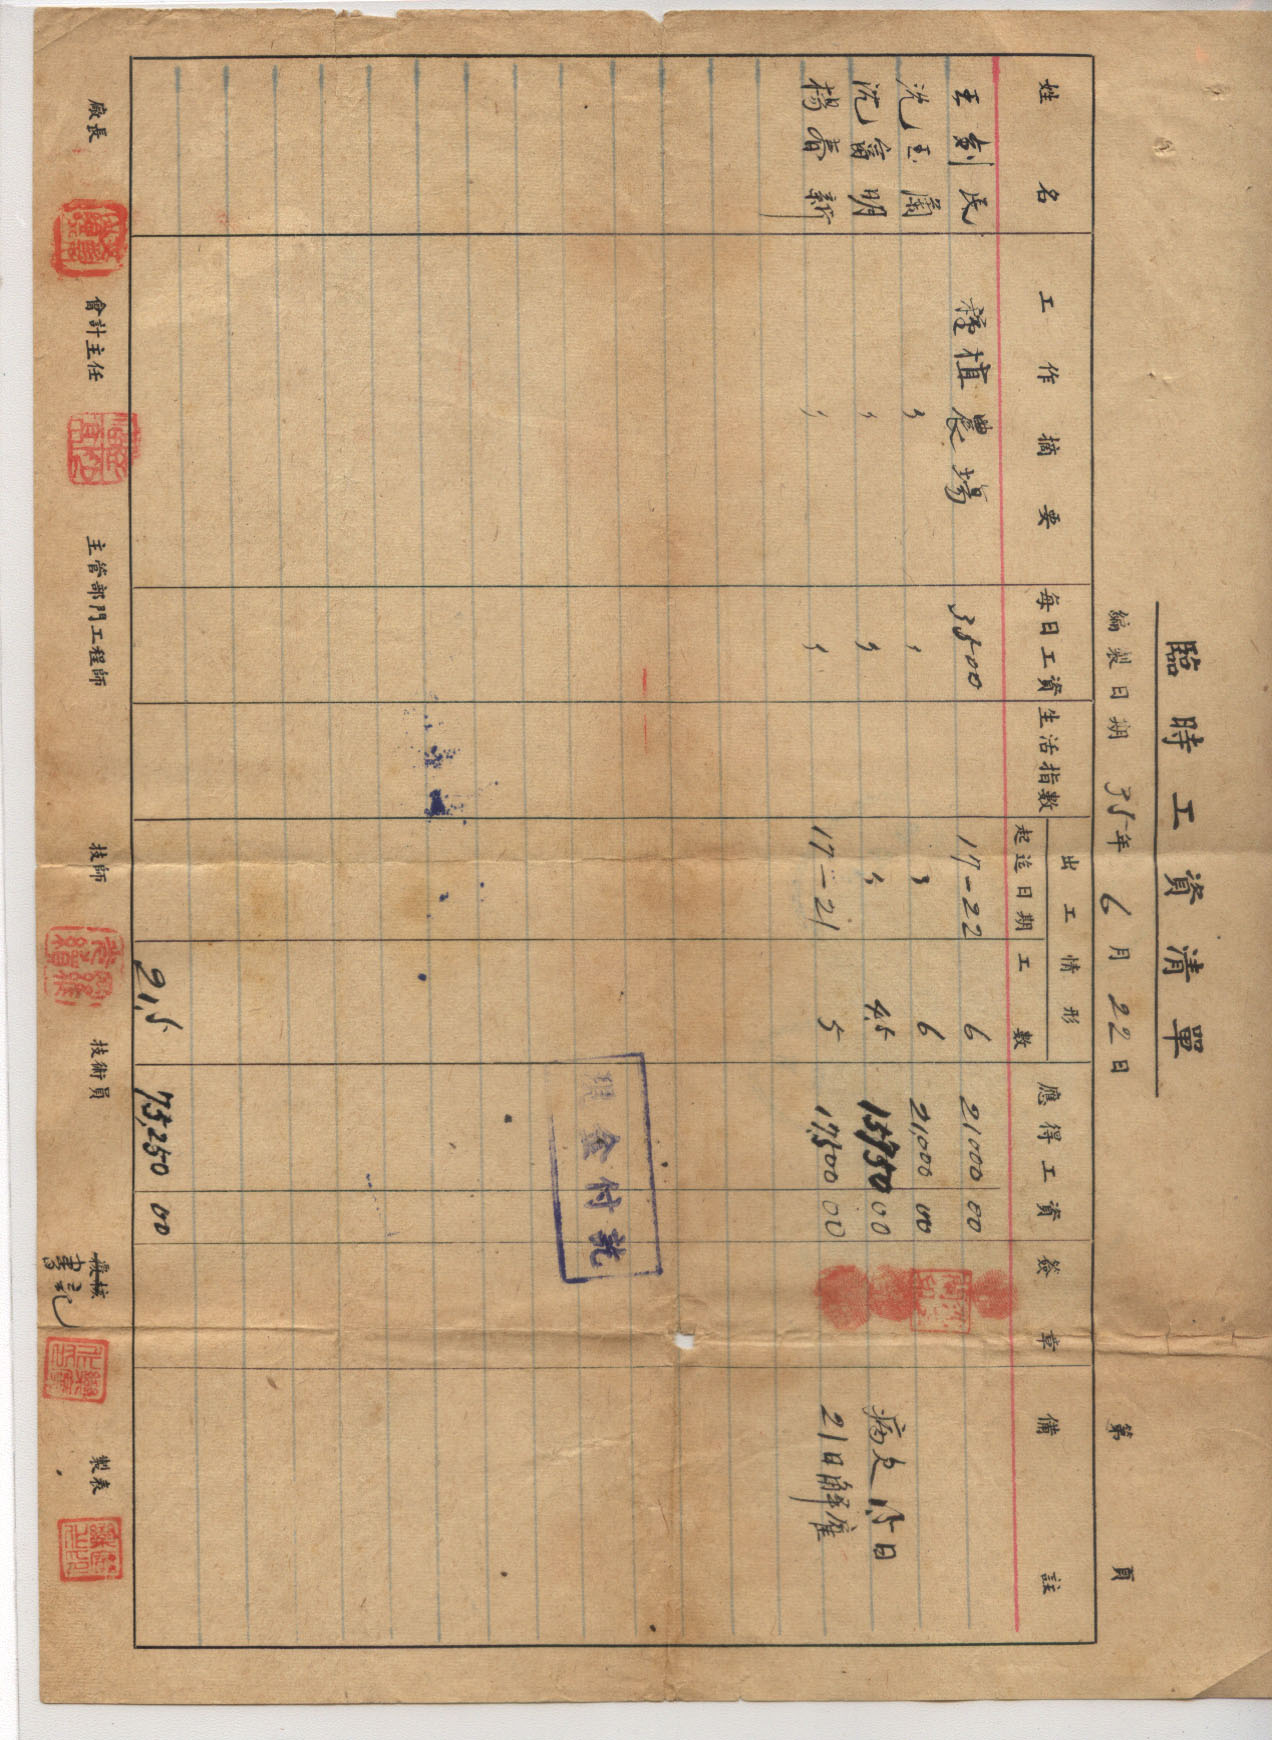 臨時工資清單
編製日期 35年 6月 22日 第 頁
姓名 工作摘要 每日工資 生活指數 出工情形 應得工資 簽章 備註
起迄日期 工數
王劉氏 種植農場 3500 17-22 6 21000 00
沈玉蘭 〃 〃 〃 6 21,000 00
沈富明 〃 〃 〃 4.5 15750 00 病欠1.5日
楊春新 〃 〃 17-21 5 17,500 00 21日解雇
現金付訖
21.5 75,250 00
廠長 會計主任 主管部門工程師 技師 技術員 書記 製表